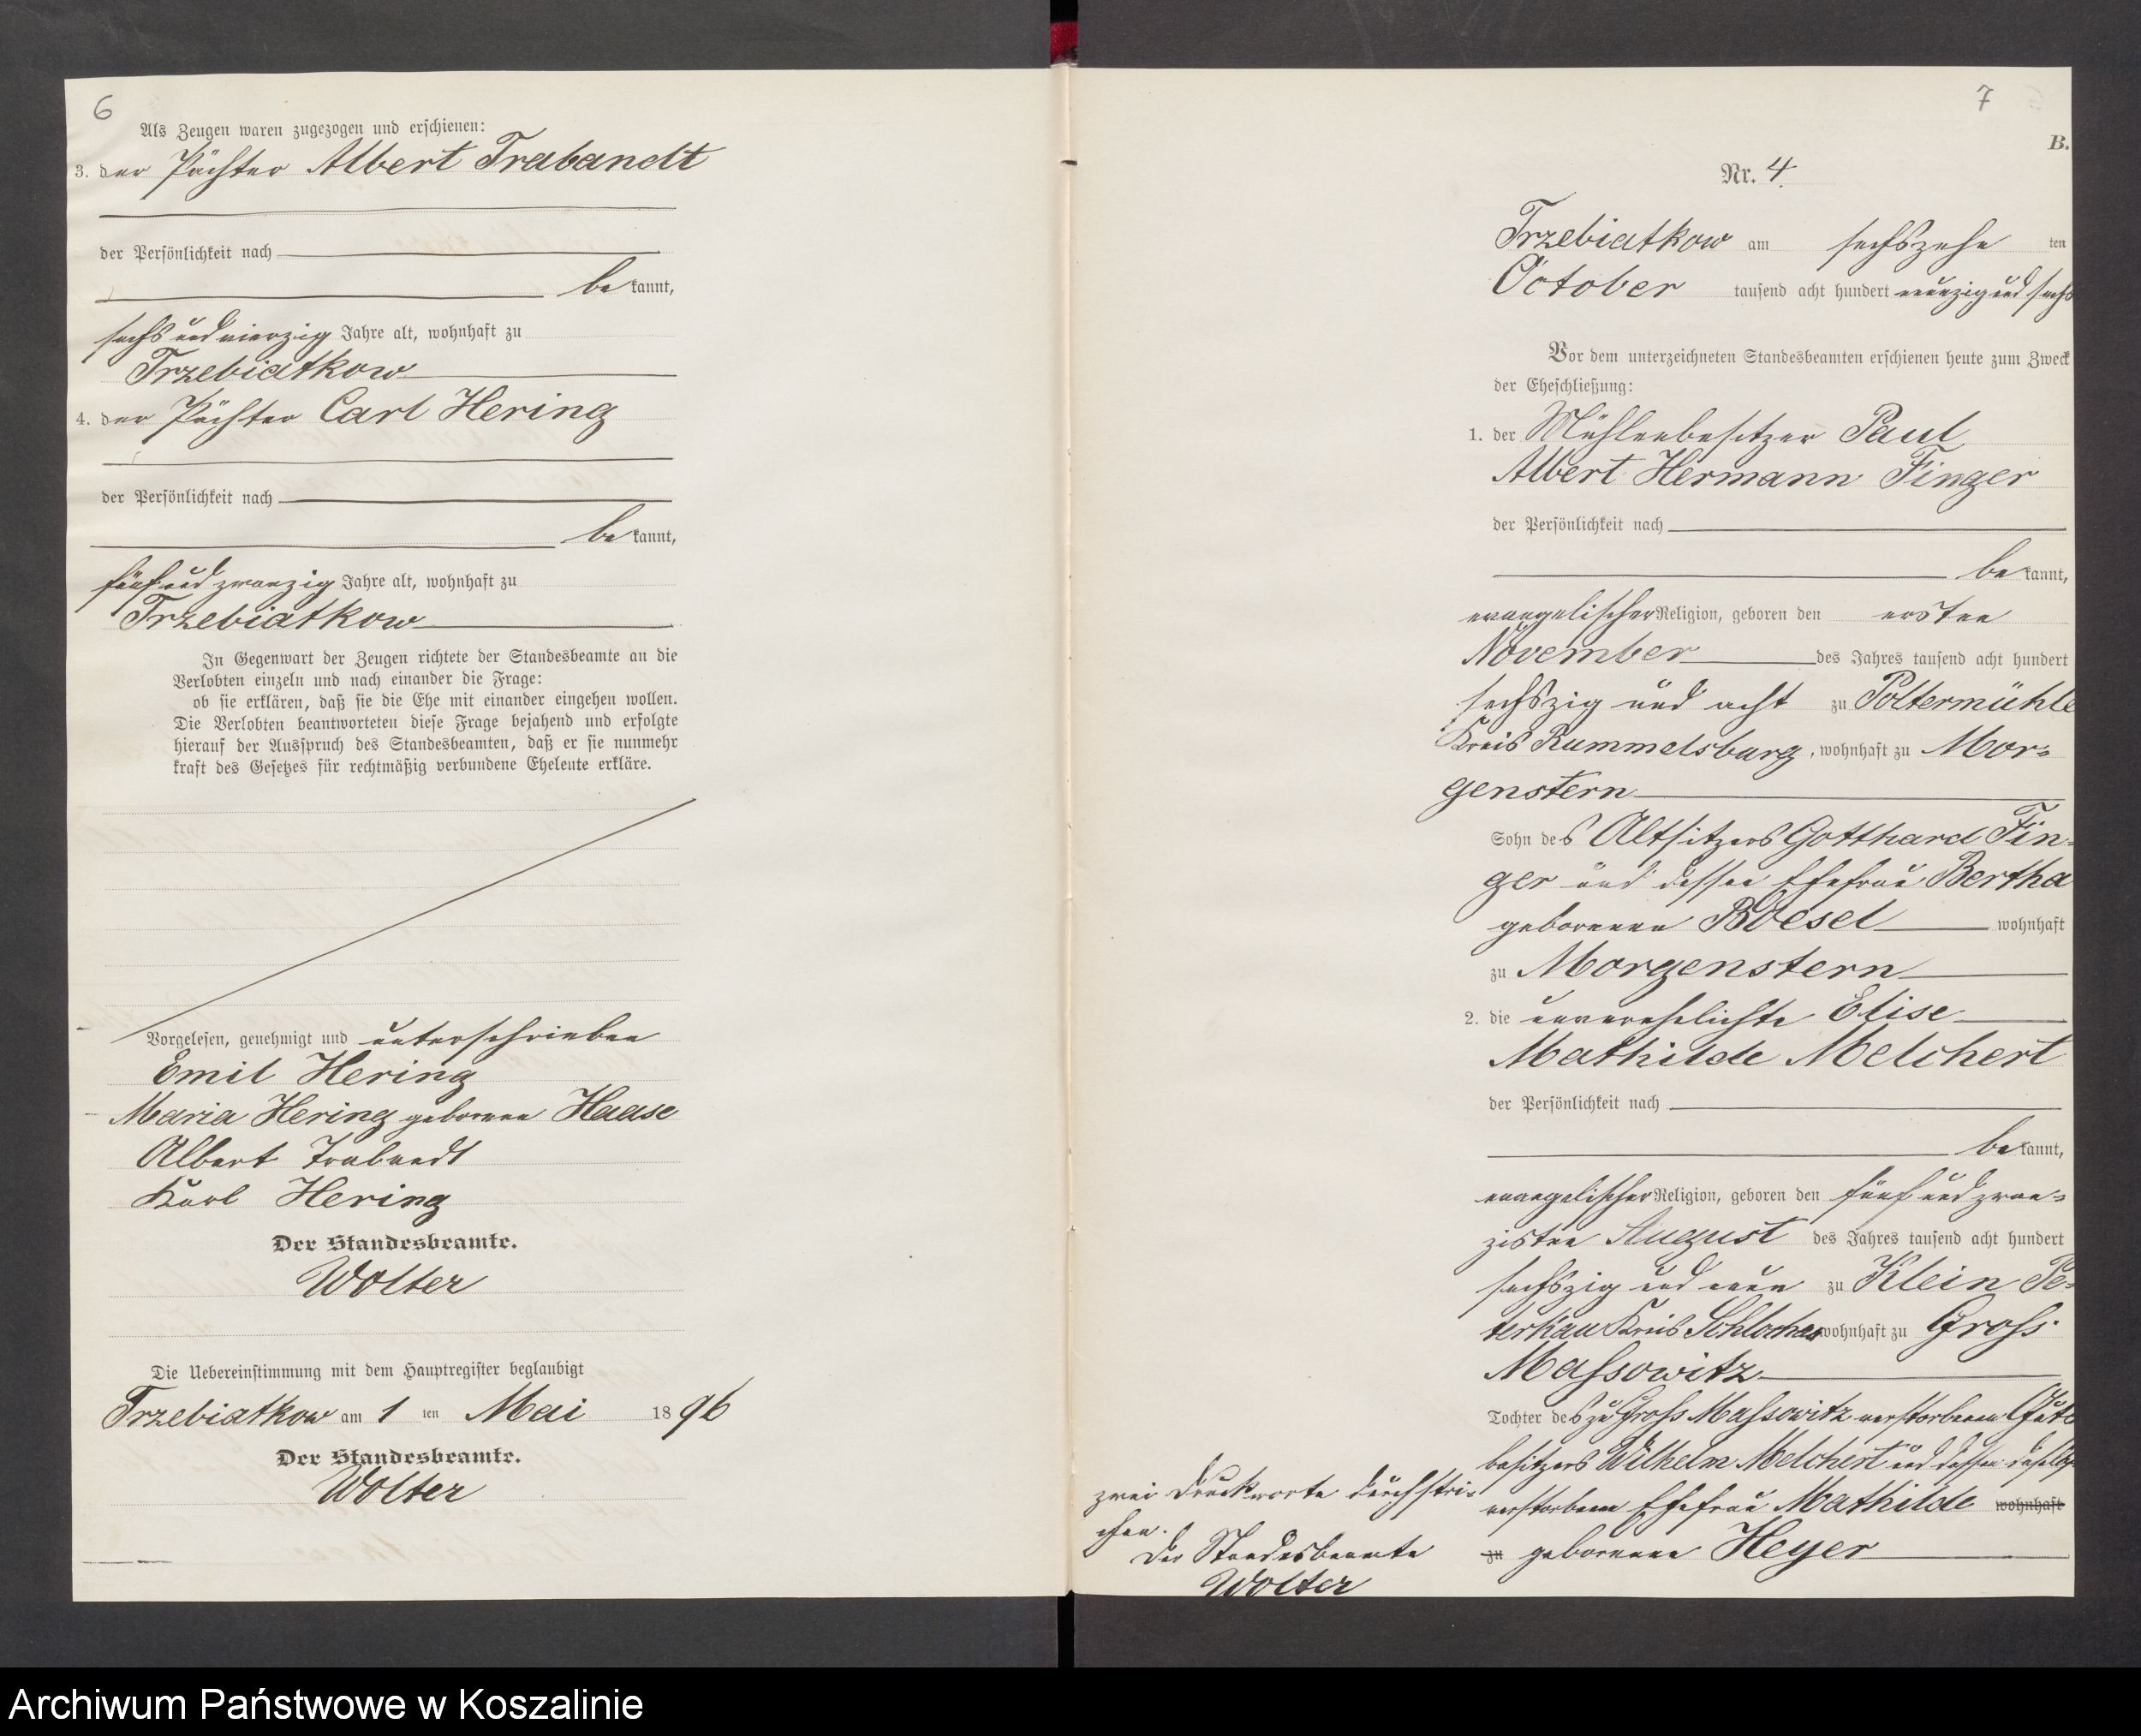 6
Als Zeugen waren zugezogen und erschienen:
3. der Pächter Albert Trabandt
der Persönlichkeit nach
be kannt,
sechs und vierzig Jahre alt, wohnhaft zu
Trzebiatkow
4. der Pächter Carl Hering
der Persönlichkeit nach
be kannt,
fünf und zwanzig Jahre alt, wohnhaft zu
Trzebiatkow
In Gegenwart der Zeugen richtete der Standesbeamte an die
Verlobten einzeln und nach einander die Frage:
ob sie erklären, daß sie die Ehe mit einander eingehen wollen.
Die Verlobten beantworteten diese Frage bejahend und erfolgte
hierauf der Ausspruch des Standesbeamten, daß er sie nunmehr
kraft des Gesetzes für rechtmäßig verbundene Eheleute erkläre.
Vorgelesen, genehmigt und unterschrieben
Emil Hering
Maria Hering geborene Haase
Albert Trabandt
Karl Hering
Der Standesbeamte.
Wolter
Die Uebereinstimmung mit dem Hauptregister beglaubigt
Trzebiatkow am 1 ten Mai 18 96
Der Standesbeamte.
Wolter
7
B.
Nr. 4.
Trzebiatkow am sechszehn ten
October tausend acht hundert neunzig und sechs
Vor dem unterzeichneten Standesbeamten erschienen heute zum Zweck
der Eheschließung:
1. der Mühlenbesitzer Paul
Albert Hermann Finger
der Persönlichkeit nach
be kannt,
evangelischer Religion, geboren den ersten
November des Jahres tausend acht hundert
sechszig und acht zu Poltermühle
Kreis Rummelsburg, wohnhaft zu Mor-
genstern
Sohn des Altsitzers Gotthard Fin-
ger und dessen Ehefrau Bertha
geborenen Boesel wohnhaft
zu Morgenstern
2. die unverehelichte Elise
Mathilde Melchert
der Persönlichkeit nach
be kannt,
evangelischer Religion, geboren den fünf und zwan-
zisten August des Jahres tausend acht hundert
sechszig und neun zu Klein Pe-
terkau Kreis Schlochau wohnhaft zu Gross
Massowitz
Tochter des zu Gross Massowitz verstorbenen Guts
besitzers Wilhelm Melchert und dessen daselbst
verstorbenen Ehefrau Mathilde wohnhaft
zu geborenen Heyer
zwei Druckworte durchstri-
chen.
Der Standesbeamte
Wolter
Archiwum Państwowe w Koszalinie